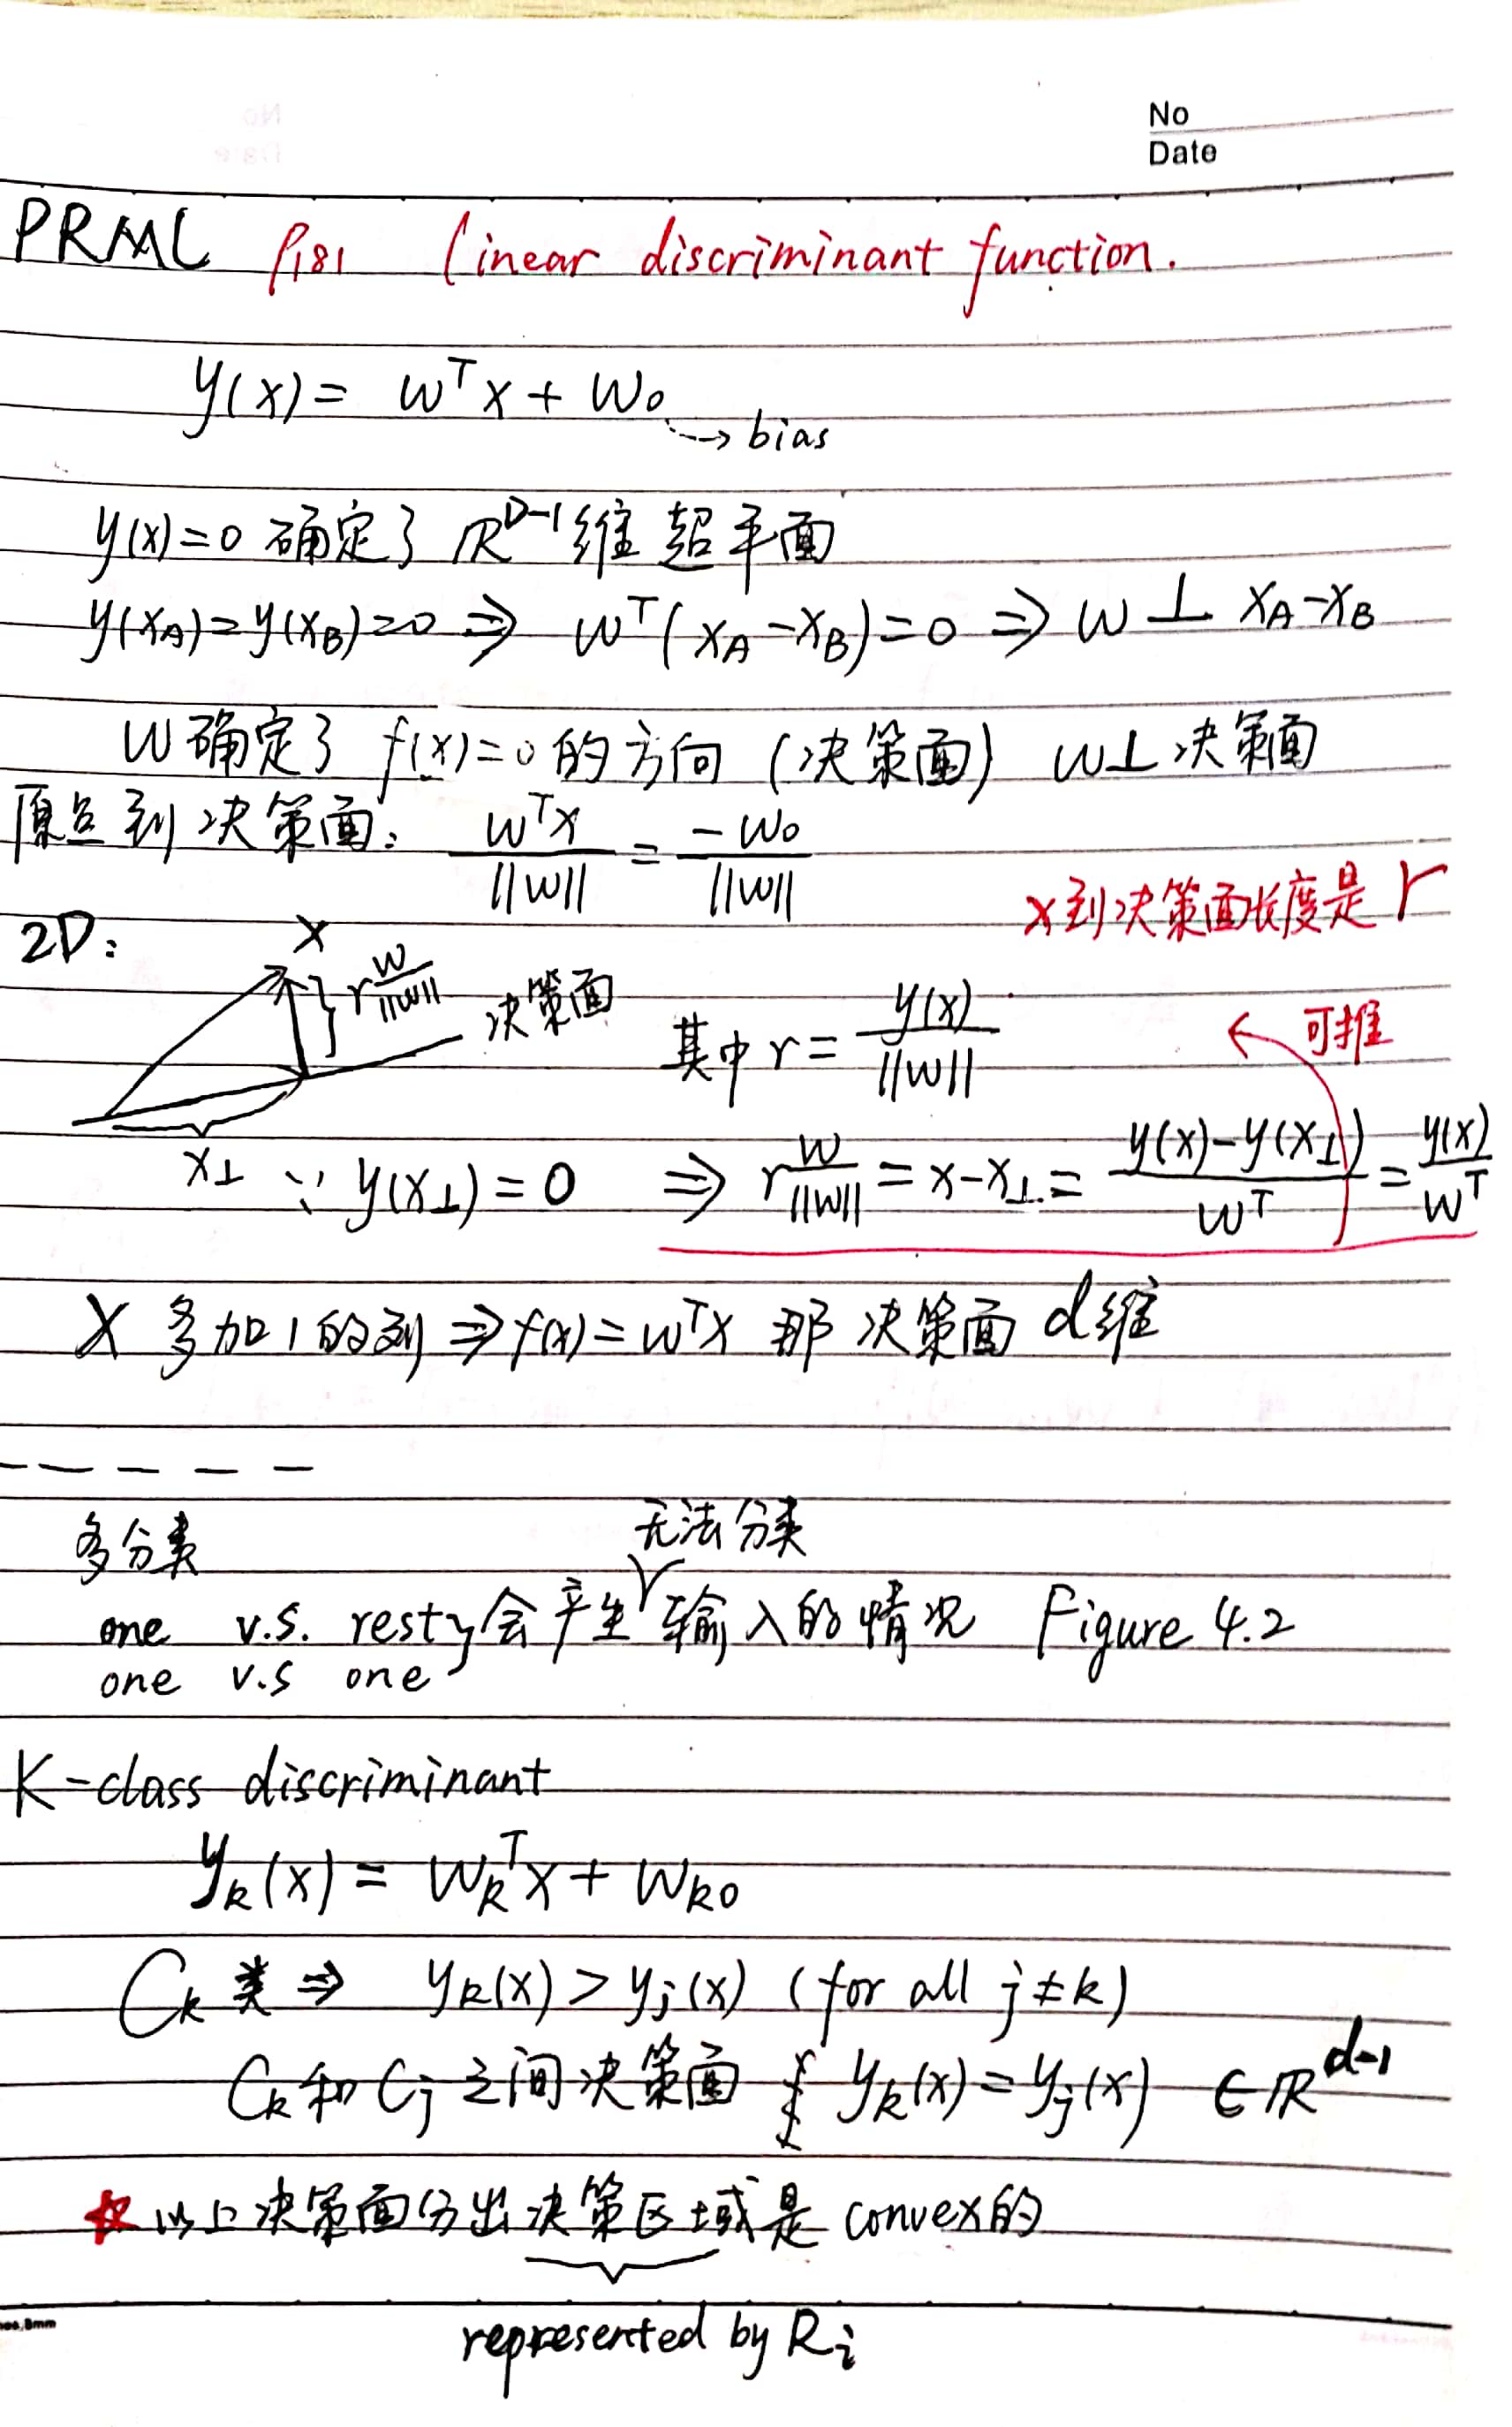 No
Date
PRML P181 Linear discriminant function.
y(x) = w^T x + w_0
⇢ bias
y(x)=0 确定了 ℝ^{D-1}维 超平面
y(x_A)=y(x_B)=0 ⇒ w^T(x_A-x_B)=0 ⇒ w ⊥ x_A-x_B
w确定了 f(x)=0 的方向 (决策面) w⊥决策面
原点到决策面: \frac{w^T x}{||w||} = \frac{-w_0}{||w||}
x到决策面长度是 r
2D: x
r\frac{w}{||w||} 决策面
其中 r = \frac{y(x)}{||w||} ← 可推
x_⊥ ∵ y(x_⊥)=0 ⇒ r\frac{w}{||w||} = x-x_⊥ = \frac{y(x)-y(x_⊥)}{w^T} = \frac{y(x)}{w^T}
X 多加1的列 ⇒ f(x)=w^T x 那决策面 d维
多分类
无法分类
one v.s. rest } 会产生 输入的情况 Figure 4.2
one v.s one
K-class discriminant
y_k(x) = w_k^T x + w_{k0}
C_k 类 ⇒ y_k(x) > y_j(x) (for all j≠k)
C_k和C_j之间决策面 y_k(x)=y_j(x) ∈ℝ^{d-1}
以上决策面分出决策区域是 convex的
represented by R_i